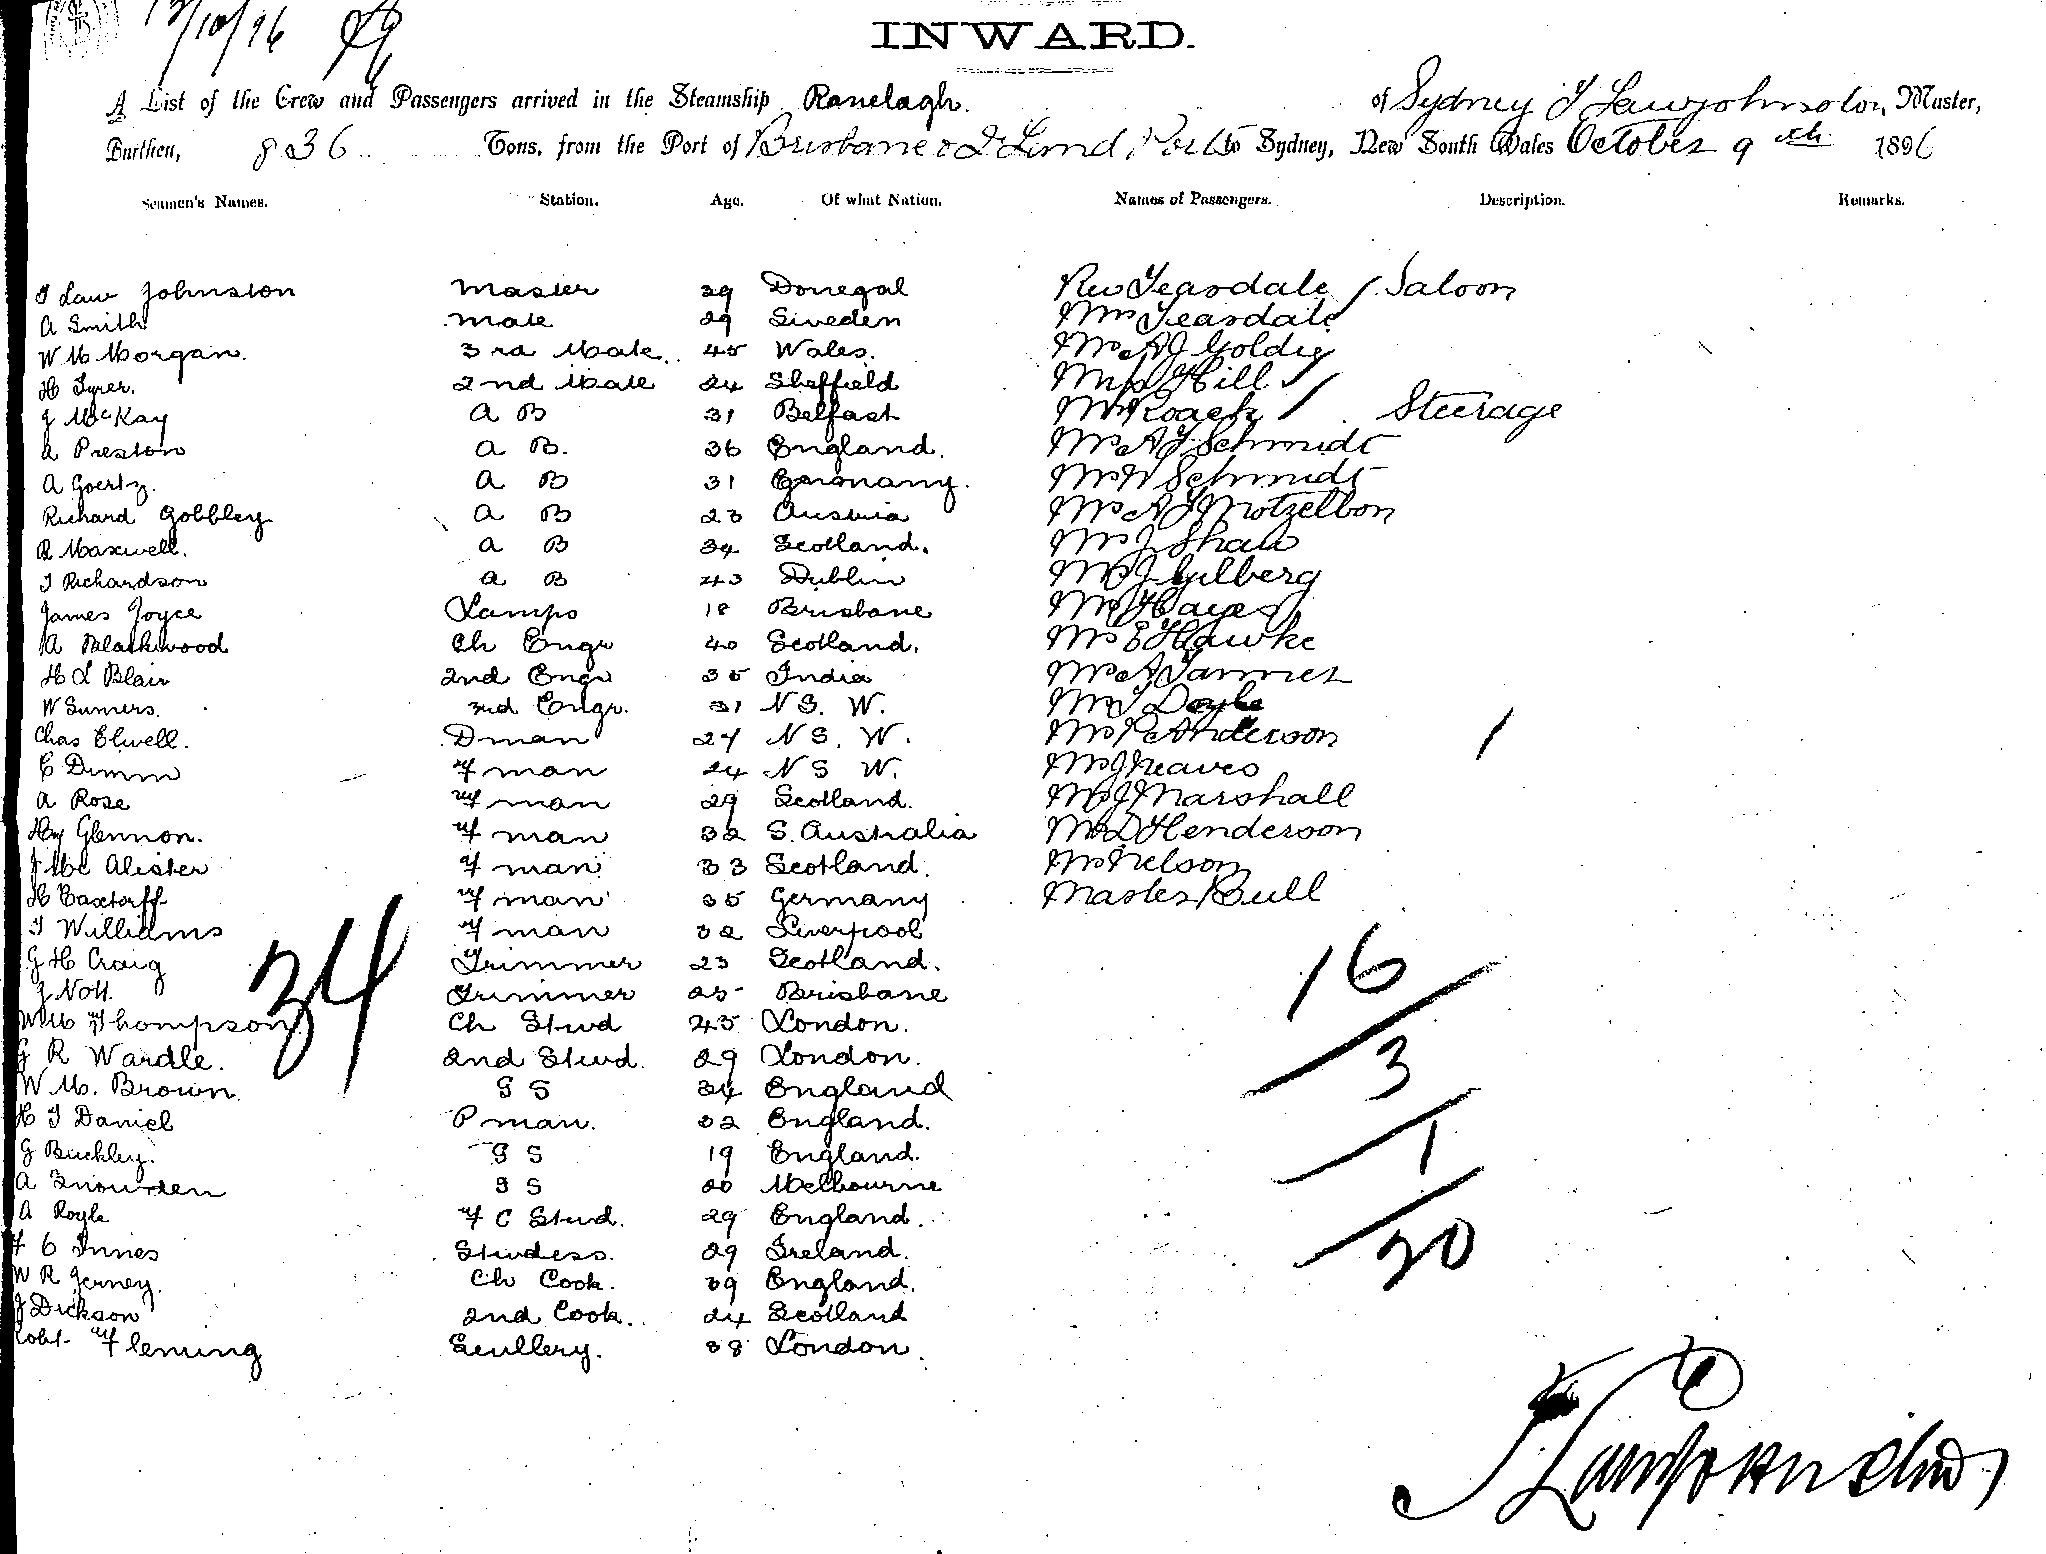 12/10/96
INWARD.
A List of the Crew and Passengers arrived in the Steamship Ranelagh. of Sydney T Law Johnston, Master,
Burthen, 836 Tons, from the Port of Brisbane & to Sydney, New South Wales October 9th 1896
Seamen's Names. Station. Age. Of what Nation. Names of Passengers. Description. Remarks.
T Law Johnston Master 39 Donegal Rev Teasdale / Saloon
A Smith Mate 29 Sweden Mrs Teasdale
W M Morgan. 3rd Mate. 45 Wales. Mr A J Goldie
H Tyrer. 2nd Mate 24 Sheffield Miss Hill /
J McKay A B 31 Belfast Mr Roach / Steerage
A Preston A B. 36 England. Mr A J Schmidt
A Goertz. A B 31 Germany. Mr W Schmidt
Richard Gobbley A B 23 Austria Mr A J Motzelbon
R Maxwell. A B 34 Scotland. Mr J Shaw
T Richardson A B 43 Dublin Mr J Gilberg
James Joyce Lamps 18 Brisbane Mr Hayes
A Blackwood Ch Engr 40 Scotland. Mr E Hawke
H L Blair 2nd Engr 35 India Mr A Tanner
W Sumers. 3rd Engr. 31 N S. W. Mr T Doyle
Chas Elwell. D man 27 N S. W. Mr P Anderson /
C Dimm F man 24 N S W. Mr J Neaves
A Rose F man 29 Scotland. Mr J Marshall
Hy Glennon. F man 32 S. Australia Mr D Henderson
J Mc Alister F man 33 Scotland. Mr Nelson
H Caxtorff F man 35 Germany Master Bull
T Williams F man 32 Liverpool
G H Craig Trimmer 23 Scotland.
J Nott. Trimmer 25 Brisbane
W M Thompson. Ch Stwd 45 London.
G R Wardle. 2nd Stwd. 29 London.
W M. Brown. S S 34 England
H T Daniel P man. 32 England.
G Buckley. S S 19 England.
A Snowden S S 20 Melbourne
A Royle F C Stwd. 29 England.
F C Innes Stwdess. 29 Ireland.
W R Jerney. Ch Cook. 39 England.
J Dickson 2nd Cook. 24 Scotland
Robt. Fleming Scullery. 38 London.
34
16
3
1
20
T Law Johnston